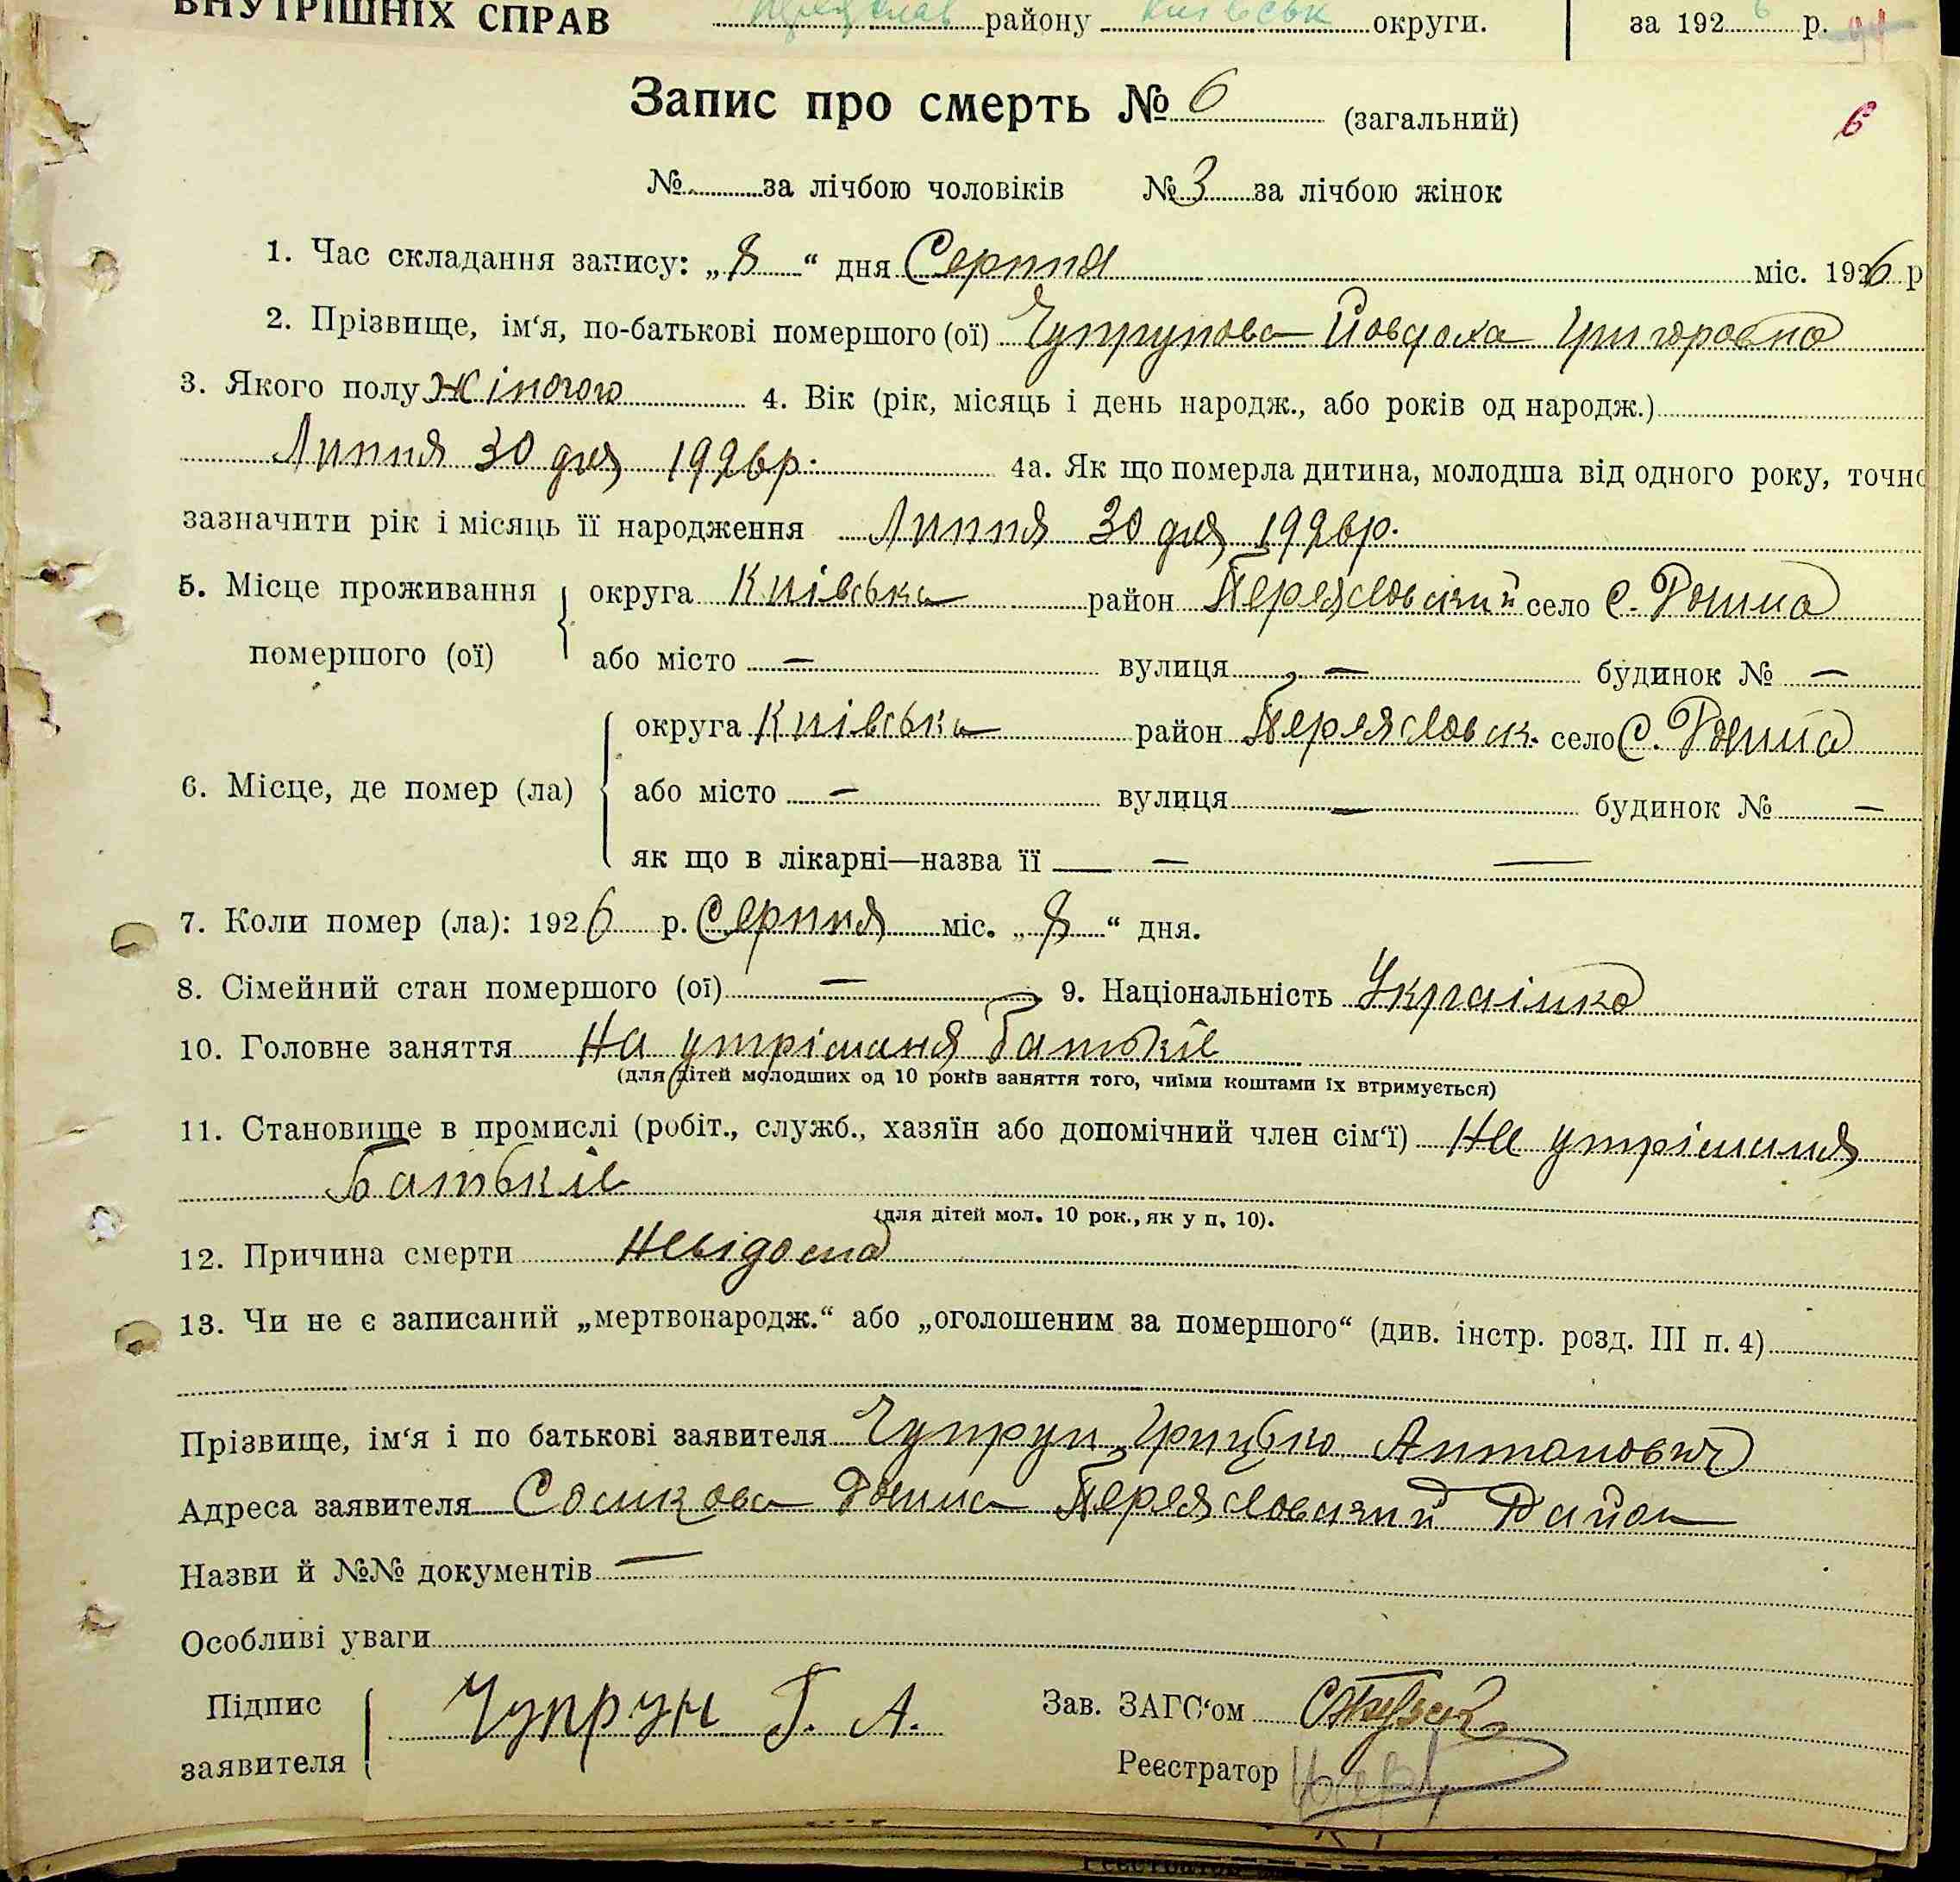 ВНУТРІШНІХ СПРАВ району Київськ округи. за 1926 р.
Запис про смерть № 6 (загальний) 6
№ за лічбою чоловіків № 3 за лічбою жінок
1. Час складання запису: „8“ дня Серпня міс. 1926 р
2. Прізвище, ім‘я, по-батькові помершого (ої) Чупрунова Йовдоха Григоровна
3. Якого полу Жіночого 4. Вік (рік, місяць і день народж., або років од народж.)
Липня 30 дня 1926р. 4а. Як що померла дитина, молодша від одного року, точно
зазначити рік і місяць її народження Липня 30 дня 1926р.
5. Місце проживання округа Київська район Переяславський село С. Рошча
помершого (ої) або місто — вулиця — будинок № —
округа Київська район Переяславськ. село С. Рошча
6. Місце, де помер (ла) або місто — вулиця — будинок № —
як що в лікарні—назва її — —
7. Коли помер (ла): 1926 р. Серпня міс. „8“ дня.
8. Сімейний стан помершого (ої) — 9. Національність Українка
10. Головне заняття На утріманя Батьків
(для дітей молодших од 10 років заняття того, чиїми коштами їх втримується)
11. Становище в промислі (робіт., служб., хазяїн або допомічний член сім‘ї) На утріманя
Батьків
(для дітей мол. 10 рок., як у п. 10).
12. Причина смерти Невідома
13. Чи не є записаний „мертвонародж.“ або „оголошеним за помершого“ (див. інстр. розд. III п. 4)
Прізвище, ім‘я і по батькові заявителя Чупрун Грицько Антанович
Адреса заявителя Сомкова Переяславский Район
Назви й №№ документів —
Особливі уваги
Підпис заявителя Чупрун Г. А. Зав. ЗАГС‘ом
Реєстратор